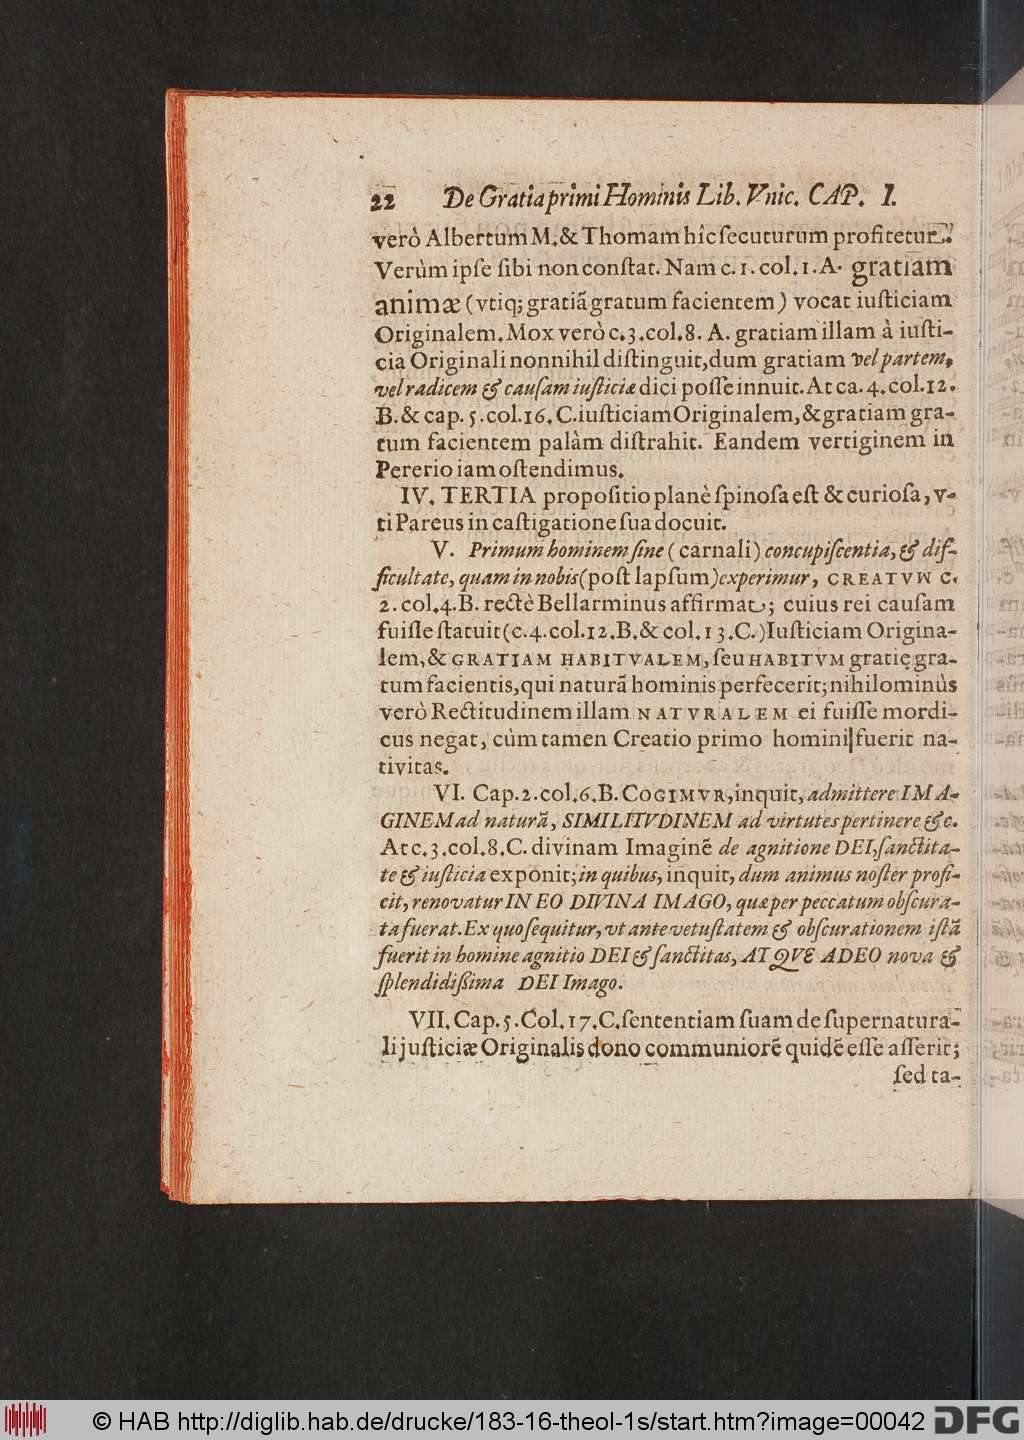 22 De Gratia primi Hominis Lib. Vnic. CAP. I.
verò Albertum M. & Thomam hîc secuturum profitetur.
Verùm ipse sibi non constat. Nam c. 1. col. 1. A. gratiam
animæ (vtiq; gratiã gratum facientem) vocat iusticiam
Originalem. Mox verò c. 3. col. 8. A. gratiam illam à iusti-
cia Originali nonnihil distinguit, dum gratiam vel partem,
vel radicem & causam iusticiæ dici posse innuit. At ca. 4. col. 12.
B. & cap. 5. col. 16. C. iusticiam Originalem, & gratiam gra-
tum facientem palàm distrahit. Eandem vertiginem in
Pererio iam ostendimus.
IV. TERTIA propositio planè spinosa est & curiosa, v-
ti Pareus in castigatione sua docuit.
V. Primum hominem sine (carnali) concupiscentia, & dif-
ficultate, quam in nobis (post lapsum) experimur, CREATVM c.
2. col. 4. B. rectè Bellarminus affirmat; cuius rei causam
fuisse statuit (c. 4. col. 12. B. & col. 13. C.) Iusticiam Origina-
lem, & GRATIAM HABITVALEM, seu HABITVM gratię gra-
tum facientis, qui naturã hominis perfecerit; nihilominùs
verò Rectitudinem illam NATVRALEM ei fuisse mordi-
cus negat, cùm tamen Creatio primo homini fuerit na-
tivitas.
VI. Cap. 2. col. 6. B. COGIMVR, inquit, admittere IMA-
GINEM ad naturã, SIMILITVDINEM ad virtutes pertinere &c.
At c. 3. col. 8. C. divinam Imaginẽ de agnitione DEI, sanctita-
te & iusticia exponit; in quibus, inquit, dum animus noster profi-
cit, renovatur IN EO DIVINA IMAGO, quæ per peccatum obscura-
ta fuerat. Ex quo sequitur, vt ante vetustatem & obscurationem istã
fuerit in homine agnitio DEI & sanctitas, ATQVE ADEO nova &
splendidissima DEI Imago.
VII. Cap. 5. Col. 17. C. sententiam suam de supernatura-
li justiciæ Originalis dono communiorẽ quidẽ esse asserit;
sed ta-
© HAB http://diglib.hab.de/drucke/183-16-theol-1s/start.htm?image=00042 DFG